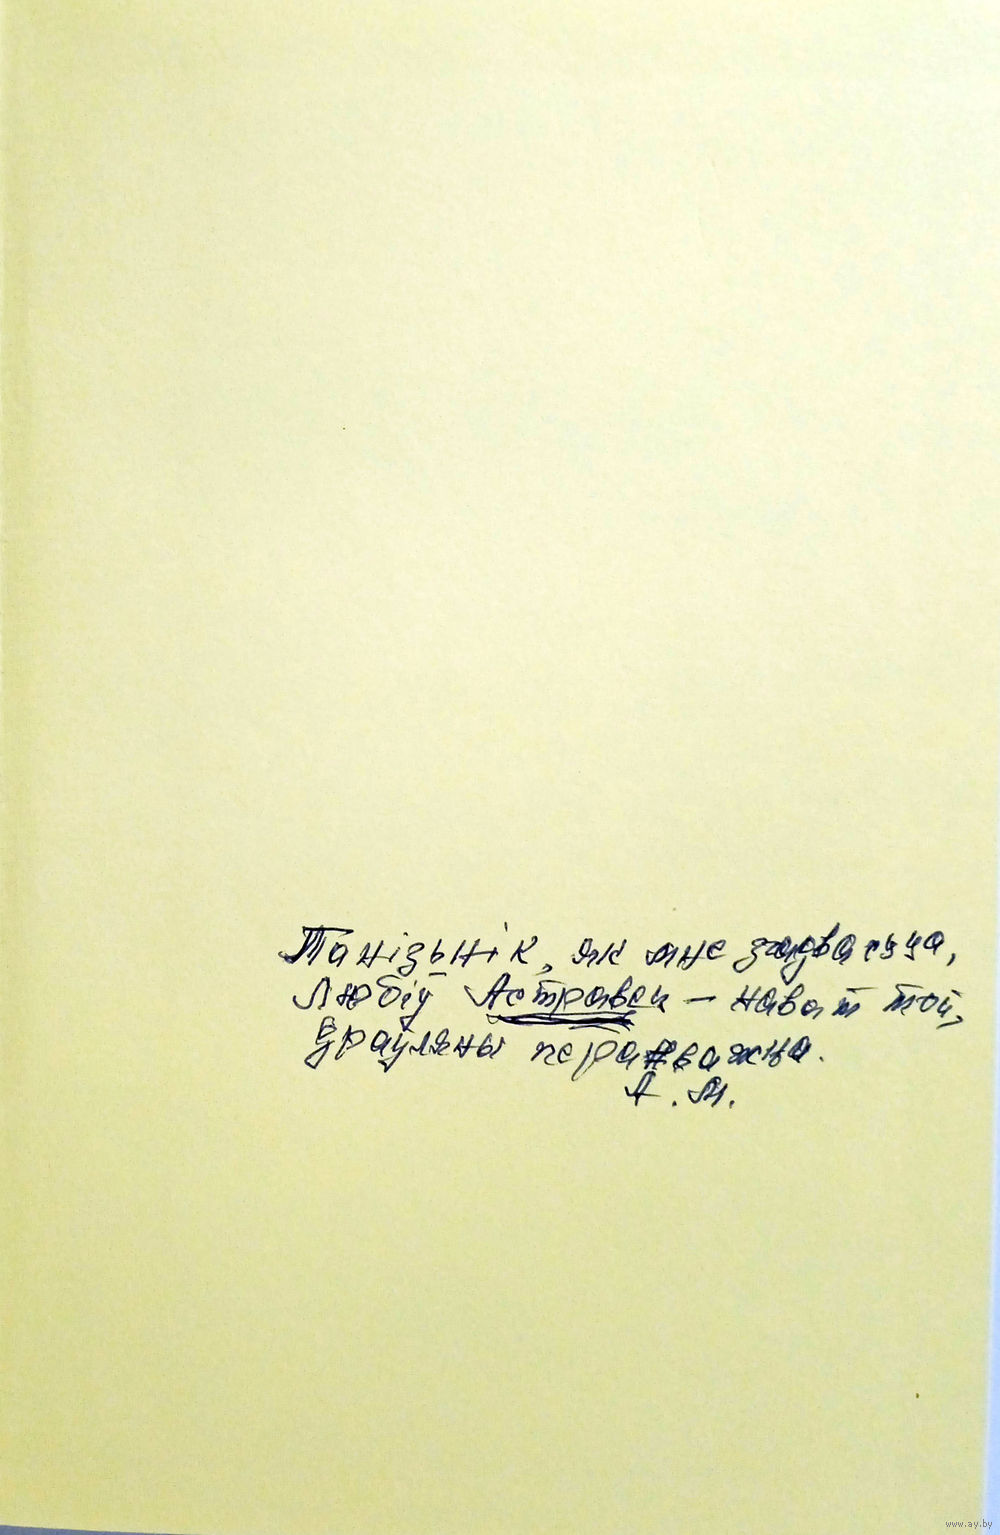 Танізьнік, як мне здаваецца,
любіў Астравец – нават той,
драўляны пераважна.
А. М.
www.ay.by